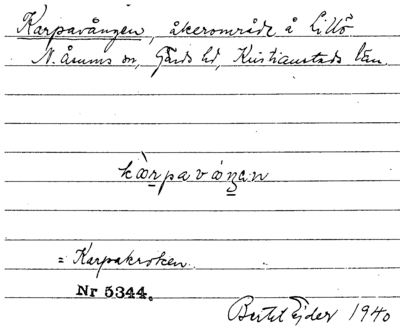 Karpavången, åkerområde å Lillö
N. Åsums sn, Gärds hd, Kristianstads län.
kàrpavóŋan
= Karpakroken.
Nr 5344.
Bertil Ejder 1940